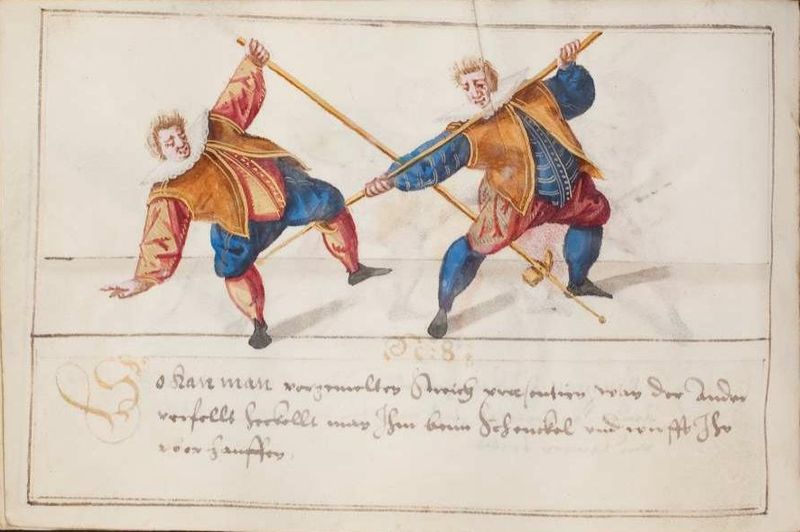 So kan man vorgemelten Streich presentirn, wan der Ander
verfellt heckellt man Ihm beim Schenckel und wirfft Ihn
vber hauffen.